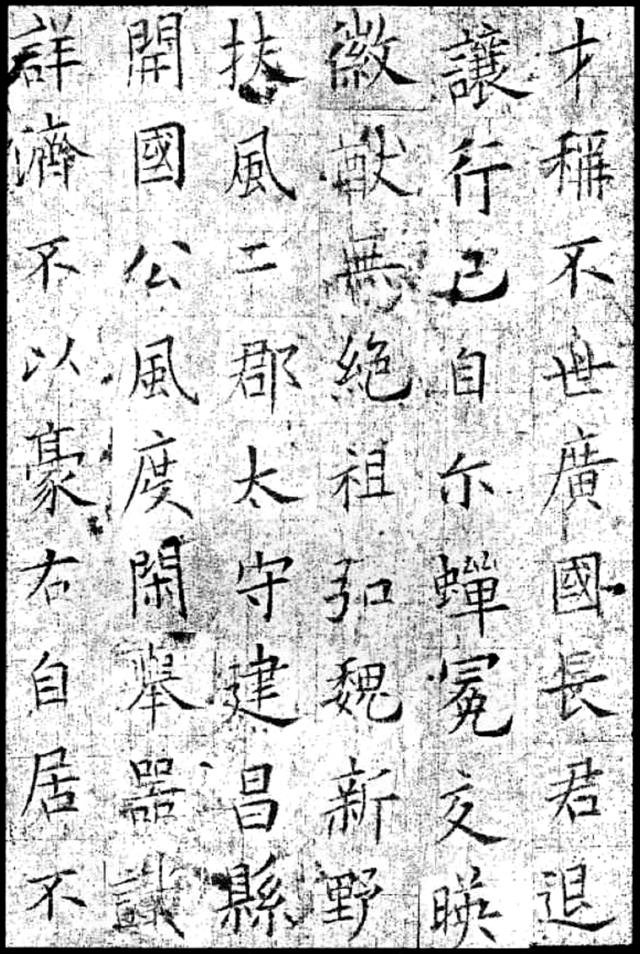 才稱不世廣國長君退
讓行己自尒蟬冕交暎
徽猷無絕祖弘魏新野
扶風二郡太守建昌縣
開國公風度閑舉器
詳濟不以豪右自居不